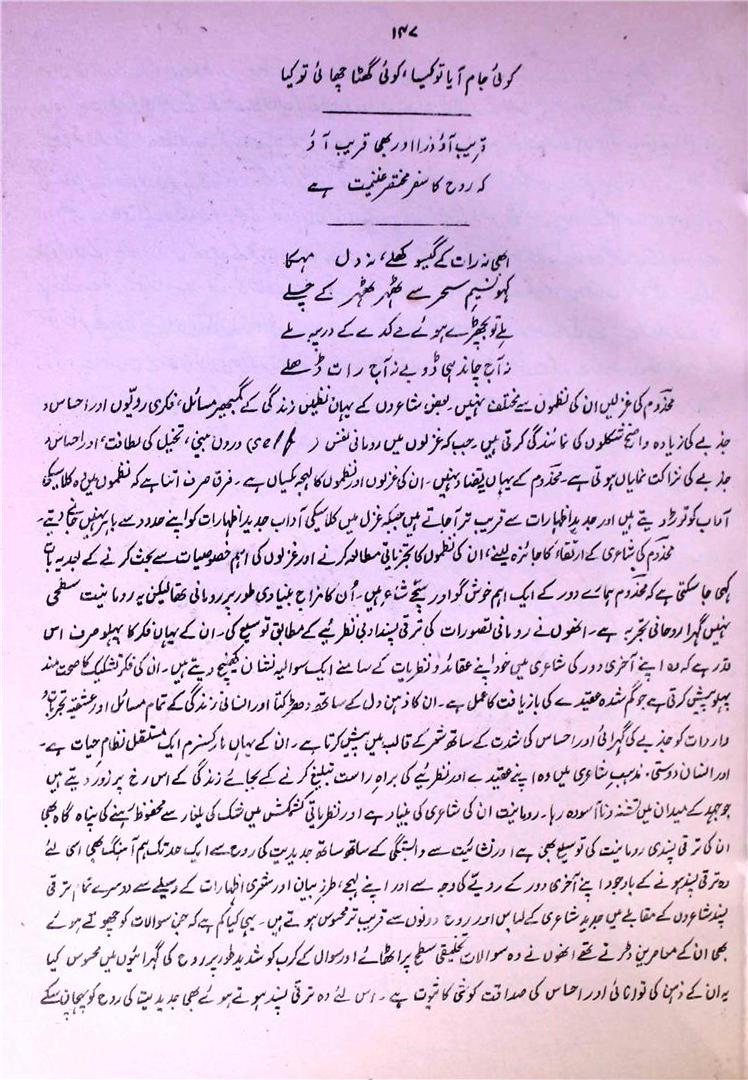 ۱۴۷
کوئی جام آیا تو کیسا، کوئی گھٹا چھائی تو کیا
قریب آؤ ذرا اور بھی قریب آؤ
کہ روح کا سفر مختصر غنیمت ہے
ابھی نہ رات کے گیسو کھلے، نہ دل مہکا
کہو نسیم سحر سے ٹھہر ٹھہر کے چلے
ملے تو بچھڑے ہوئے مے کدے کے در پہ ملے
نہ آج چاند ہی ڈوبے نہ آج رات ڈھلے
مخدوم کی غزلیں ان کی نظموں سے مختلف نہیں۔ بعض شاعروں کے یہاں نظمیں زندگی کے گمبھیر مسائل، فکری رویوں اور احساس و
جذبے کی زیادہ واضح شکلوں کی نمائندگی کرتی ہیں۔ جب کہ غزلوں میں رومانی نفس (self) دروں بینی، تخیل کی لطافت، اور احساس و
جذبے کی نزاکت نمایاں ہوتی ہے۔ مخدوم کے یہاں یہ تضاد نہیں۔ ان کی غزلوں اور نظموں کا لہجہ یکساں ہے۔ فرق صرف اتنا ہے کہ نظموں میں وہ کلاسیکی
آداب کو توڑ دیتے ہیں اور جدید اظہارات سے قریب تر آجاتے ہیں جبکہ غزل میں کلاسیکی آداب جدید اظہارات کو اپنے حدود سے باہر نہیں جانے دیتے۔
مخدوم کی شاعری کے ارتقاء کا جائزہ لینے، ان کی نظموں کا تجزیاتی مطالعہ کرنے اور غزلوں کی اہم خصوصیات سے بحث کرنے کے بعد یہ بات
کہی جا سکتی ہے کہ مخدوم ہمارے دور کے ایک اہم خوش گو اور سچے شاعر ہیں۔ اُن کا مزاج بنیادی طور پر رومانی تھا لیکن یہ رومانیت سطحی
نہیں گہرا روحانی تجربہ ہے۔ انھوں نے رومانی تصورات کی ترقی پسند ادبی نظریئے کے مطابق توسیع کی۔ ان کے یہاں فکر کا پہلو صرف اس
قدر ہے کہ وہ اپنے آخری دور کی شاعری میں خود اپنے عقائد و نظریات کے سامنے ایک سوالیہ نشان کھینچ دیتے ہیں۔ ان کی فکر تشکیک کا صحت مند
پہلو پیش کرتی ہے جو گم شدہ عقیدے کی بازیافت کا عمل ہے۔ ان کا ذہن دل کے ساتھ دھڑکتا اور انسانی زندگی کے تمام مسائل اور عشقیہ تجربات و
واردات کو جذبے کی گہرائی اور احساس کی شدت کے ساتھ شعر کے قالب میں پیش کرتا ہے۔ ان کے یہاں مارکسزم ایک مستقل نظام حیات ہے۔
اور انسان دوستی، مذہب شاعری میں وہ اپنے عقیدے اور نظریئے کی براہِ راست تبلیغ کرنے کے بجائے زندگی کے اس رخ پر زور دیتے ہیں
جو جہد کے میدان میں تشنہ و ناآسودہ رہا۔ رومانیت ان کی شاعری کی بنیاد ہے اور نظریاتی کشمکش میں شک کی یلغار سے محفوظ رہنے کی پناہ گاہ بھی
ان کی ترقی پسندی رومانیت کی توسیع بھی ہے اور نشائیت سے وابستگی کے ساتھ ساتھ جدیدیت کی روح سے ایک حد تک ہم آہنگ بھی اسی لئے
وہ ترقی پسند ہونے کے باوجود اپنے آخری دور کے رویے کی وجہ سے اور اپنے لہجے، طرز بیان اور شعری اظہارات کے وسیلے سے دوسرے تمام ترقی
پسند شاعروں کے مقابلے میں جدید شاعری کے لباس اور روح دونوں سے قریب تر محسوس ہوتے ہیں۔ یہی کیا کم ہے کہ جن سوالات کو چھوتے ہوئے
بھی ان کے معاصرین ڈرتے تھے انھوں نے وہ سوالات تخلیقی سطح پر اٹھائے اور سوال کے کرب کو شدید طور پر روح کی گہرائیوں میں محسوس کیا
یہ ان کے ذہن کی توانائی اور احساس کی صداقت کوشی کا ثبوت ہے۔ اس لئے وہ ترقی پسند ہوتے ہوئے بھی جدیدیت کی روح کو پہچان سکے